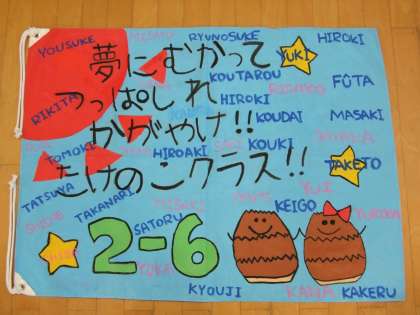 YOUSUKE RYUNOSUKE HIROKI
夢にむかって YUKI
つっぱしれ KOUTAROU FŪTA
RIKITO HIROKI
かがやけ!! KOUDAI MASAKI
TOMOKI HIROAKI KOUKI
たけのこクラス!! TAKETO
TATSUYA YUI
TAKANARI MISAKI KEIGO
SATORU
2-6
KYOUJI KANA KAKERU